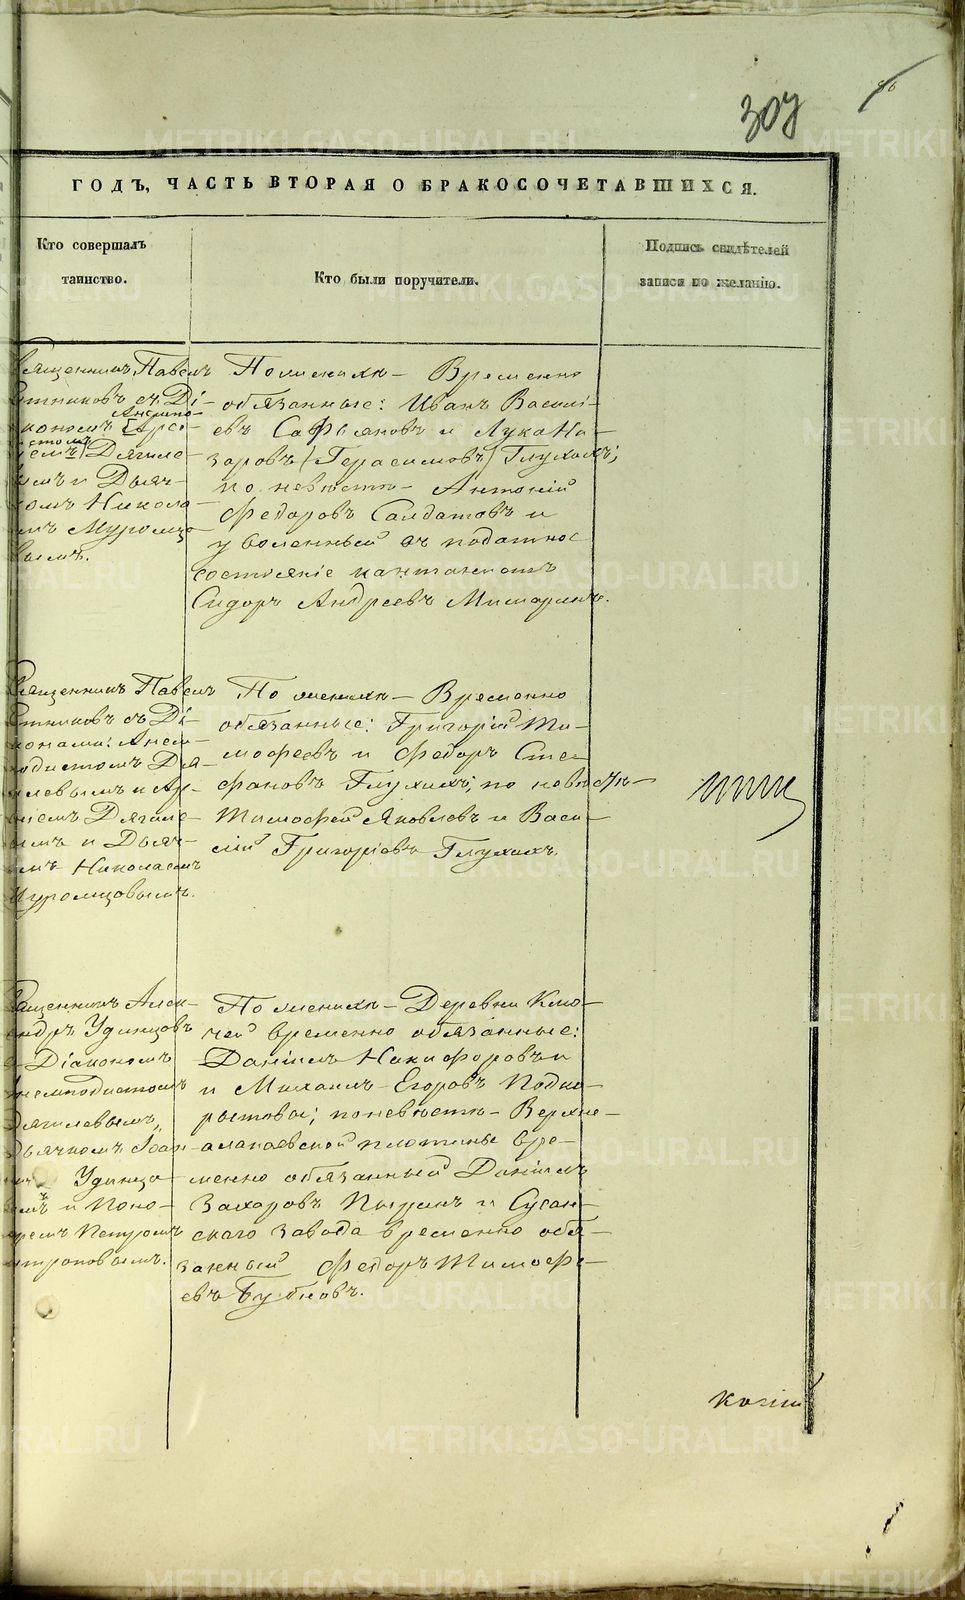 307
86
ГОДЪ, ЧАСТЬ ВТОРАЯ О БРАКОСОЧЕТАВШИХСЯ.
Кто совершалъ
таинство.
Кто были поручители.
Подпись свидѣтелей
записи по желанію.
Священникъ Павелъ
съ Ді-
кономъ
Дягиле-
вымъ и Дьяч-
комъ Никола-
емъ Муромцо-
вымъ.
По женихѣ – Временно
обязанные: Иванъ Василі-
евъ Сафьяновъ и Лука На-
заровъ (Герасимовъ) Глухихъ;
по невѣстѣ – Антоній
Федоровъ Салдатовъ и
уволенный въ податное
состояніе кантонистъ
Сидоръ Андреевъ
Священникъ Павелъ
съ Ді-
конами: Анем-
подистомъ Дя-
гилевымъ и Ар-
Дягиле-
вымъ и Дьяч-
комъ Николаемъ
Муромцовымъ.
По женихѣ – Временно
обязанные: Григорій Ти-
мофеевъ и Федоръ Сте-
фановъ Глухихъ; по невѣстѣ –
Тимофей Яковлевъ и Васи-
лій Григорьевъ Глухихъ.
Священникъ Алек-
сандръ Удинцовъ
съ Діакономъ
Анемподистомъ
Дягилевымъ,
Дьячкомъ Іоан-
номъ Удинцо-
вымъ и Поно-
маремъ Петромъ
По женихѣ – Деревни Клю-
чей временно обязанные:
Даніилъ Никифоровъ и
и Михаилъ Егоровъ Подко-
рытовы; по невѣстѣ – Верхне-
алапаевской плотины вре-
менно обязанный Даніилъ
Захаровъ и Сусан-
скаго завода временно обя-
занный Федоръ Тимофе-
евъ Бубновъ.
METRIKI.GASO-URAL.RU